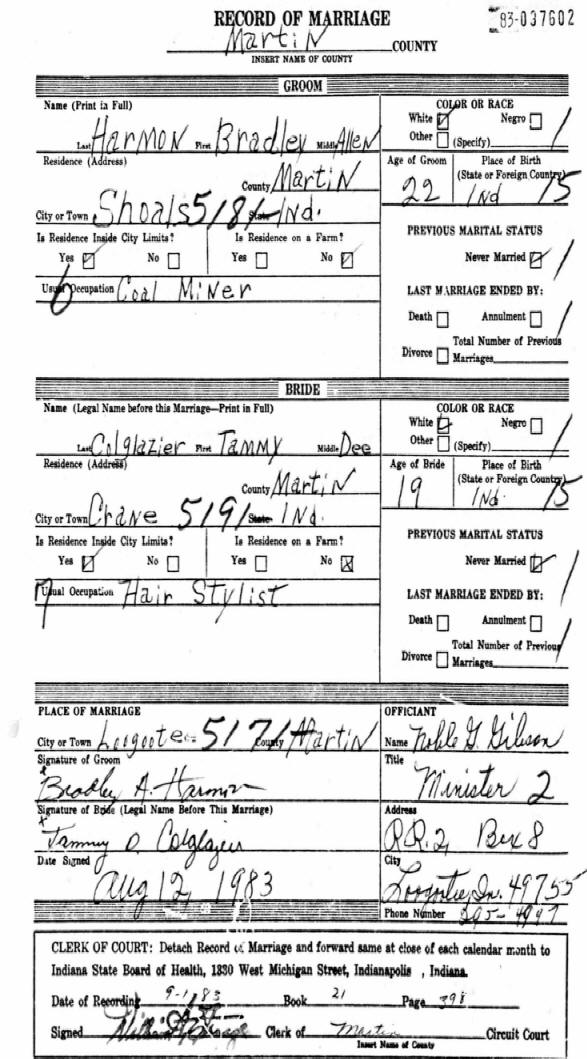 RECORD OF MARRIAGE
83-037602
Martin COUNTY
INSERT NAME OF COUNTY
GROOM
Name (Print in Full)
Last HARMON First Bradley Middle Allen
COLOR OR RACE
White Negro
Other (Specify)
Residence (Address)
County Martin
City or Town Shoals 5181 State Ind.
Age of Groom 22
Place of Birth (State or Foreign Country) Ind 15
Is Residence Inside City Limits? Is Residence on a Farm?
Yes No Yes No
Usual Occupation Coal Miner
6
PREVIOUS MARITAL STATUS
Never Married
LAST MARRIAGE ENDED BY:
Death Annulment
Total Number of Previous
Divorce Marriages
BRIDE
Name (Legal Name before this Marriage—Print in Full)
Last Colglazier First TAMMY Middle Dee
COLOR OR RACE
White Negro
Other (Specify)
Residence (Address)
County Martin
City or Town Crane 5191 State Ind.
Age of Bride 19
Place of Birth (State or Foreign Country) Ind. 15
Is Residence Inside City Limits? Is Residence on a Farm?
Yes No Yes No
Usual Occupation Hair Stylist
7
PREVIOUS MARITAL STATUS
Never Married
LAST MARRIAGE ENDED BY:
Death Annulment
Total Number of Previous
Divorce Marriages
PLACE OF MARRIAGE
City or Town Loogootee 5171 County Martin
Signature of Groom
x Bradley A. Harmon
Signature of Bride (Legal Name Before This Marriage)
x Tammy D. Colglazier
Date Signed
Aug 12, 1983
OFFICIANT
Name Noble G. Gibson
Title
Minister 2
Address
R.R.2, Box 8
City
Loogootee, In. 49755
Phone Number 295-4997
CLERK OF COURT: Detach Record of Marriage and forward same at close of each calendar month to
Indiana State Board of Health, 1330 West Michigan Street, Indianapolis , Indiana.
Date of Recording 9-1-83 Book 21 Page 398
Signed Clerk of Martin Circuit Court
Insert Name of County